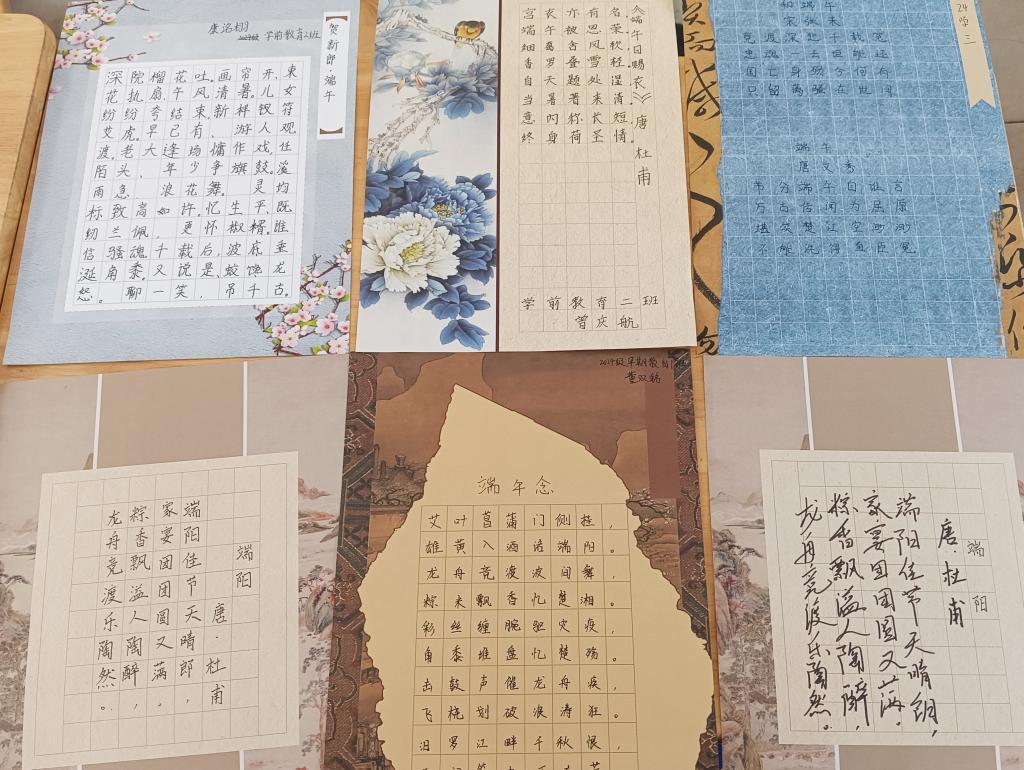 【贺新郎·端午】
学前教育2班
深院榴花吐。画帘开、束
花执扇、午风清暑。儿女
纷纷夸结束,新样钗符
艾虎。早已有、游人观
渡。老大逢场慵作戏,任
陌头、年少争旗鼓。溪
雨急、浪花舞。灵均
标致高如许。忆生平、既
纫兰佩,更怀椒糈。谁
信骚魂千载后,波底垂
涎角黍。又说是、蛟馋龙
怒。聊一笑,吊千古。
《端午日赐衣》唐 杜甫
宫衣亦有名,
端午被恩荣。
细葛含风软,
香罗叠雪轻。
自天题处湿,
当暑著来清。
意内称长短,
终身荷圣情。
学前教育二班
曾庆航
24学三
和端午
宋 张耒
竞渡深悲千载冤
忠魂一去讵能还
国亡身殒今何有
只留离骚在世间
端午
唐 文秀
节分端午自谁言
万古传闻为屈原
堪笑楚江空渺渺
不能洗得直臣冤
端阳
唐·杜甫
端阳佳节天晴郎,
家宴团团圆又满。
粽香飘溢人陶醉,
龙舟竞渡乐陶然。
2024级早期教育1班
端午念
艾叶菖蒲门侧挂,
雄黄入酒话端阳。
龙舟竞渡波间舞,
粽米飘香忆楚湘。
彩丝缠腕驱灾疫,
角黍堆盘忆楚殇。
击鼓声催龙舟疾,
飞桡划破浪涛狂。
汨罗江畔千秋恨,
端阳
唐·杜甫
端阳佳节天晴朗,
家宴团团圆又满.
粽香飘溢人陶醉,
龙舟竞渡乐陶然。